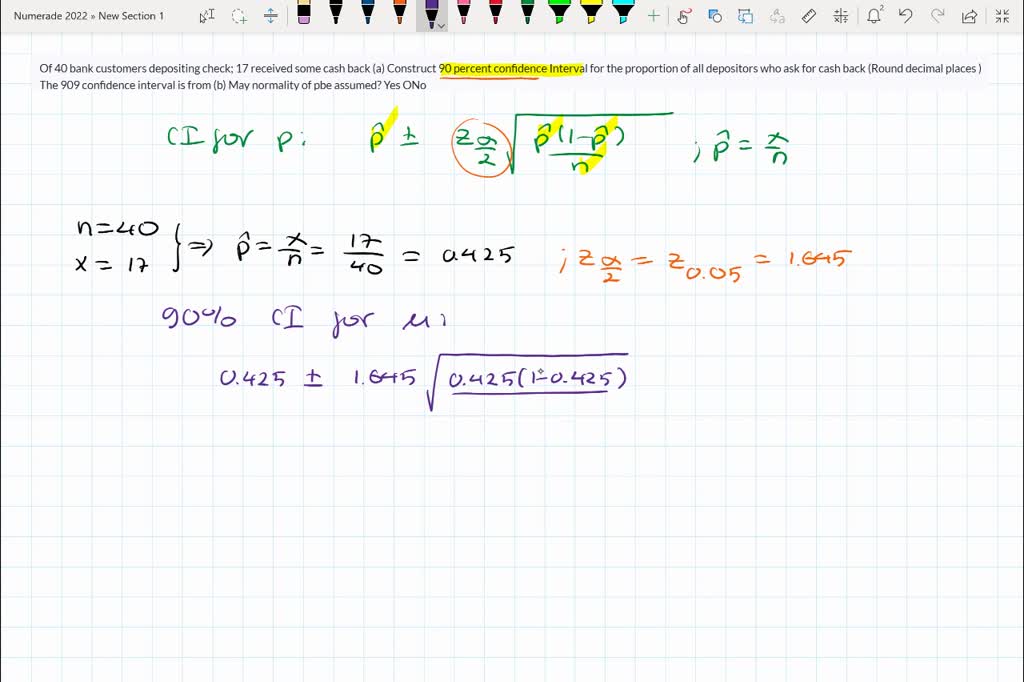 Numerade 2022 » New Section 1
Of 40 bank customers depositing check; 17 received some cash back (a) Construct 90 percent confidence Interval for the proportion of all depositors who ask for cash back (Round decimal places )
The 909 confidence interval is from (b) May normality of pbe assumed? Yes ONo
CI for p: p̂ ± z α/2 √ p̂(1-p̂)/n ; p̂ = x/n
n=40
x = 17 } ⇒ p̂ = x/n = 17/40 = 0.425 ; z α/2 = z 0.05 = 1.645
90% CI for μ:
0.425 ± 1.645 √ 0.425(1-0.425)